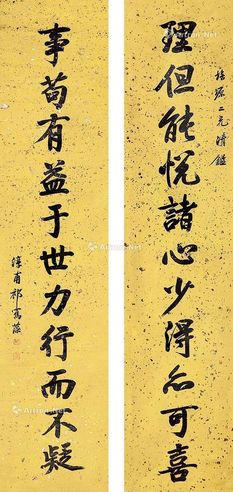 培源二兄清鉴
理但能悦諸心少得亦可喜
事苟有益于世力行而不疑
淳甫祁寯藻